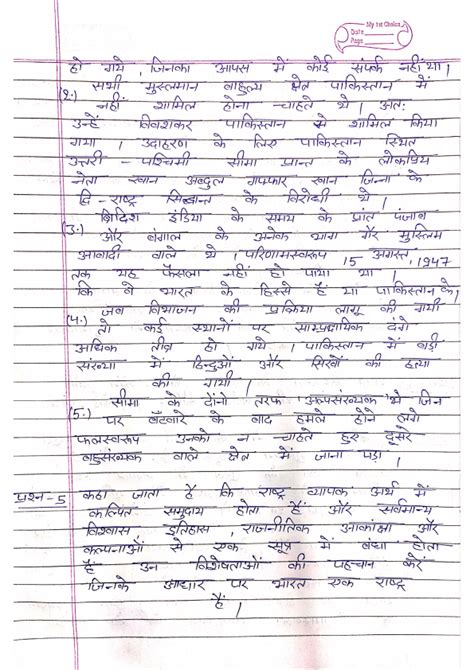 My 1st Choice
Date
Page
हो गये, जिनका आपस में कोई संपर्क नहीं था।
(2.) सभी मुस्लमान बाहुल्य क्षेत्र पाकिस्तान में
नहीं शामिल होना चाहते थे। अतः
उन्हें विवशकर पाकिस्तान मे शामिल किया
गया। उदाहरण के लिए पाकिस्तान स्थित
उत्तरी - पश्चिमी सीमा प्रान्त के लोकप्रिय
नेता खान अब्दुल गफ्फार खान जिन्ना के
द्वि - राष्ट्र सिद्धान्त के विरोधी थे।
(3.) ब्रिटिश इंडिया के समय के प्रांत पंजाब
और बंगाल के अनेक भाग गैर मुस्लिम
आबादी वाले थे। परिणामस्वरूप 15 अगस्त, 1947
तक यह फैसला नहीं हो पाया था।
कि वे भारत के हिस्से हैं या पाकिस्तान के।
(4.) जब विभाजन की प्रक्रिया लागू की गयी
तो कई स्थानों पर साम्प्रदायिक दंगे
अधिक तीव्र हो गये। पाकिस्तान में बड़ी
संख्या में हिन्दुओं और सिखों की हत्या
की गयी।
(5.) सीमा के दोनों तरफ अल्पसंख्यक थे जिन
पर बँटवारे के बाद हमले होने लगे
फलस्वरूप उनको न चाहते हुए दूसरे
बहुसंख्यक वाले क्षेत्र में जाना पड़ा।
प्रश्न - 5 कहा जाता है कि राष्ट्र व्यापक अर्थ में
कल्पित समुदाय होता है और सर्वमान्य
विश्वास इतिहास, राजनीतिक आकांक्षा और
कल्पनाओं से एक सूत्र में बंधा होता
है उन विशेषताओं की पहचान करें
जिनके आधार पर भारत एक राष्ट्र
है।